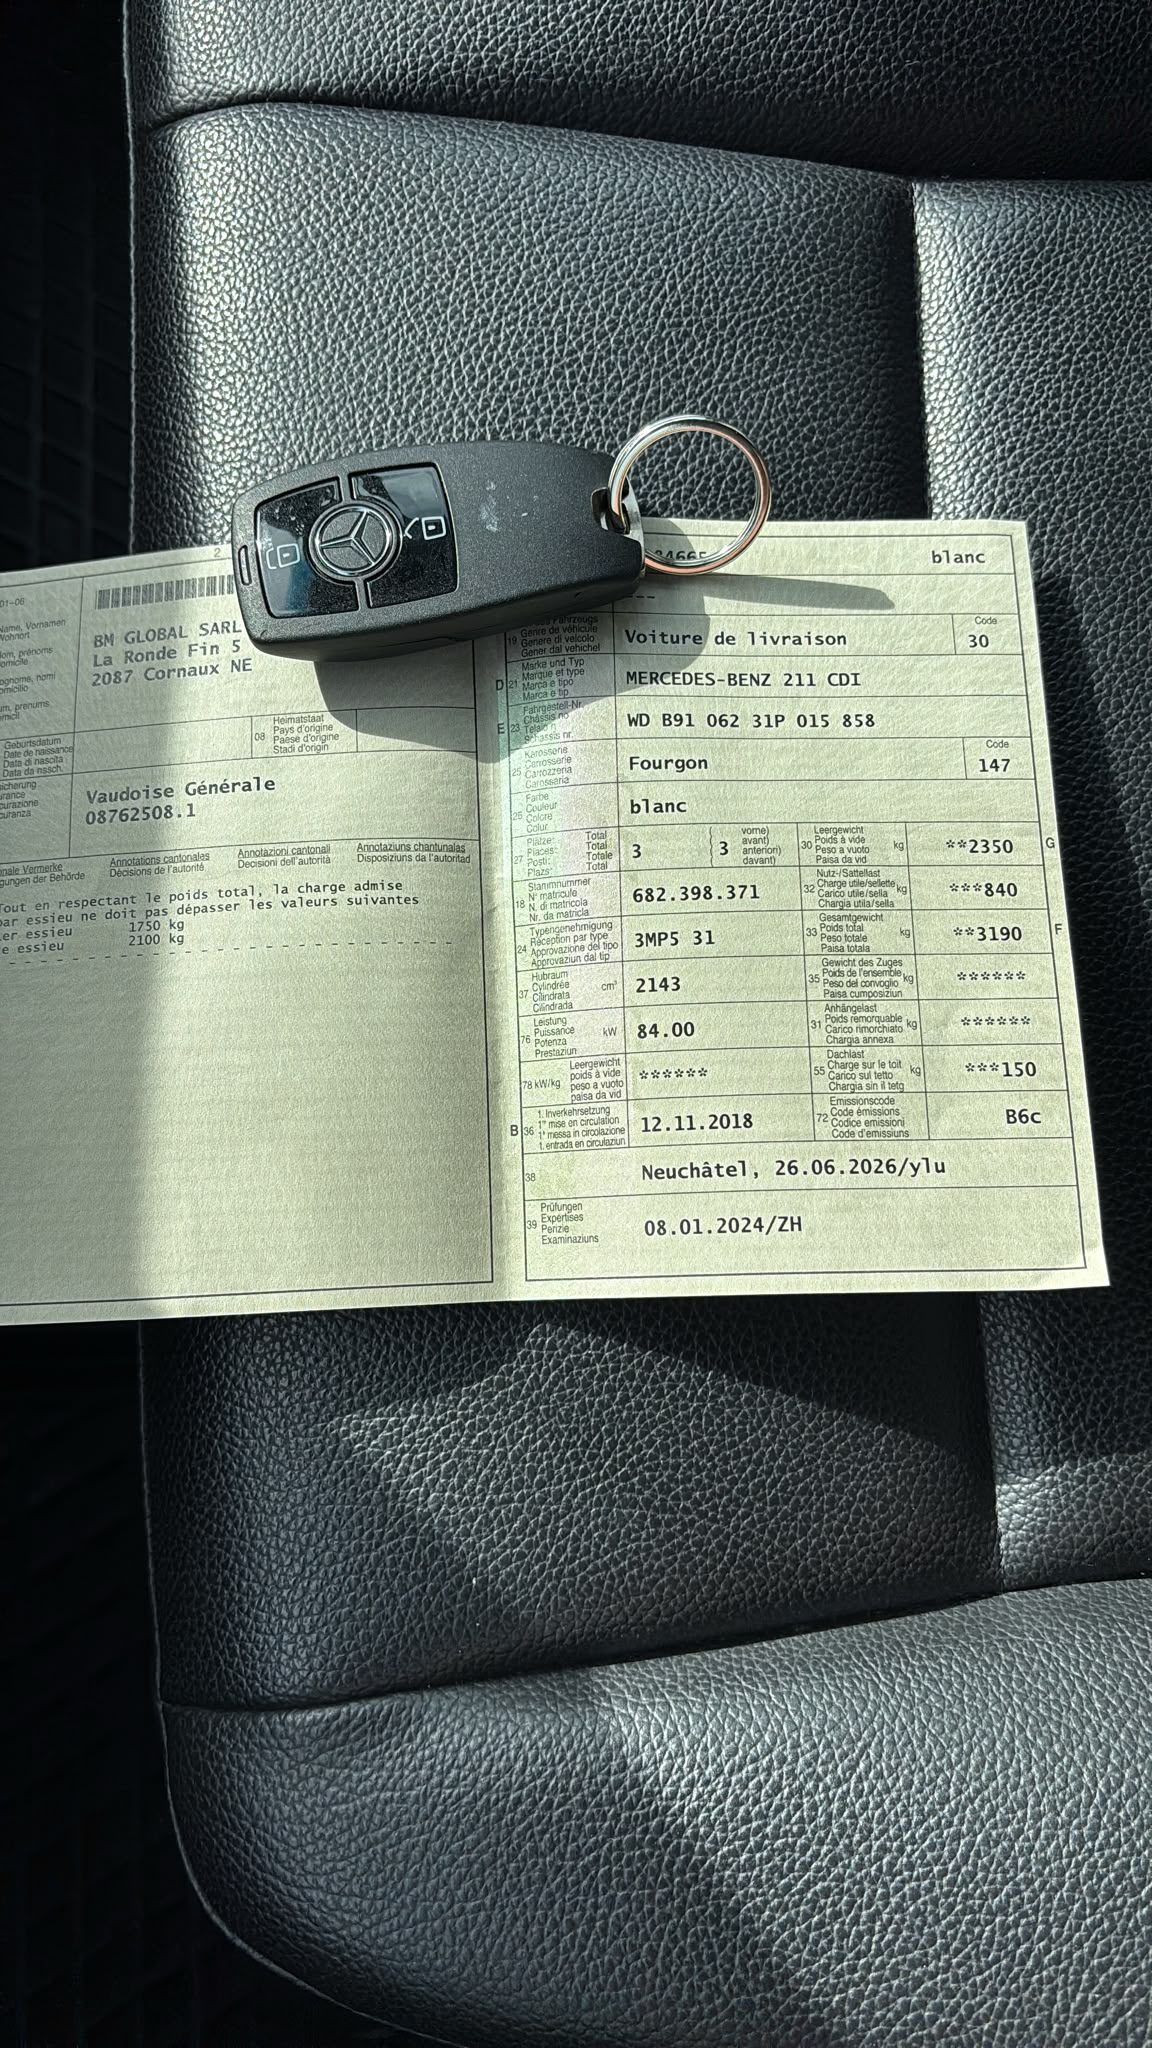 2
01-06
Name, Vornamen
Wohnort
nom, prénoms
domicile
cognome, nomi
domicilio
num, prenums
domicil
BM GLOBAL SARL
La Ronde Fin 5
2087 Cornaux NE
Geburtsdatum
Date de naissance
Data di nascita
Data da nasch.
08
Heimatstaat
Pays d'origine
Paese d'origine
Stadi d'origin
Vaudoise Générale
08762508.1
Annotations cantonales
Décisions de l'autorité
Annotazioni cantonali
Decisioni dell'autorità
Annotaziuns chantunalas
Disposiziuns da l'autoritad
Tout en respectant le poids total, la charge admise
par essieu ne doit pas dépasser les valeurs suivantes
1er essieu 1750 kg
2e essieu 2100 kg
blanc
---
19
Genre de véhicule
Genere di veicolo
Gener dal vehichel
Voiture de livraison
Code
30
D 21
Marke und Typ
Marque et type
Marca e tipo
Marca e tip
MERCEDES-BENZ 211 CDI
E 23
Fahrgestell-Nr.
Châssis no
WD B91 062 31P 015 858
25
Karosserie
Carrosserie
Carrozzeria
Carossaria
Fourgon
Code
147
26
Farbe
Couleur
Colore
Colur
blanc
27
Plätze: Total
Places: Total
Posti: Totale
Plazs: Total
3
( 3
vorne)
avant)
anteriori)
davant)
30
Leergewicht
Poids à vide
Peso a vuoto
Paisa da vid
kg
**2350
G
18
Stammnummer
N° matricule
N. di matricola
Nr. da matricla
682.398.371
32
Nutz-/Sattellast
Charge utile/sellette
Carico utile/sella
Chargia utila/sella
kg
***840
24
Typengenehmigung
Réception par type
Approvazione del tipo
Approvaziun dal tip
3MP5 31
33
Gesamtgewicht
Poids total
Peso totale
Paisa totala
kg
**3190
F
37
Hubraum
Cylindrée
Cilindrata
Cilindrada
cm³
2143
35
Gewicht des Zuges
Poids de l'ensemble
Peso del convoglio
Paisa cumposiziun
kg
******
76
Leistung
Puissance
Potenza
Prestaziun
kW
84.00
31
Anhängelast
Poids remorquable
Carico rimorchiato
Chargia annexa
kg
******
78 kW/kg
Leergewicht
poids à vide
peso a vuoto
paisa da vid
******
55
Dachlast
Charge sur le toit
Carico sul tetto
Chargia sin il tetg
kg
***150
B 36
1. Inverkehrsetzung
1re mise en circulation
1a messa in circolazione
1. entrada en circulaziun
12.11.2018
72
Emissionscode
Code émissions
Codice emissioni
Code d'emissiuns
B6c
38
Neuchâtel, 26.06.2026/ylu
39
Prüfungen
Expertises
Perizie
Examinaziuns
08.01.2024/ZH